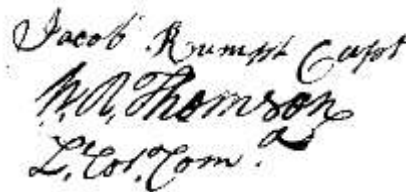 Jacob Rumph Capt
W. R. Thomson
L. Col. Com.